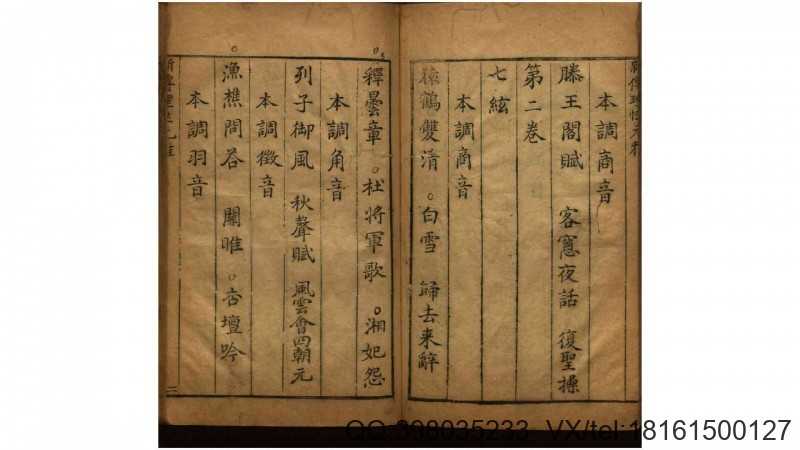 本調商音
滕王閣賦 客窻夜話 復聖操
第二卷
七絃
本調商音
猿鶴雙清 。白雪 歸去来辭
。釋曇章 。杜將軍歌 。湘妃怨
本調角音
列子御風 秋聲賦 風雲會四朝元
本調徵音
。漁樵問荅 關雎 。杏壇吟
本調羽音
VX/tel:18161500127